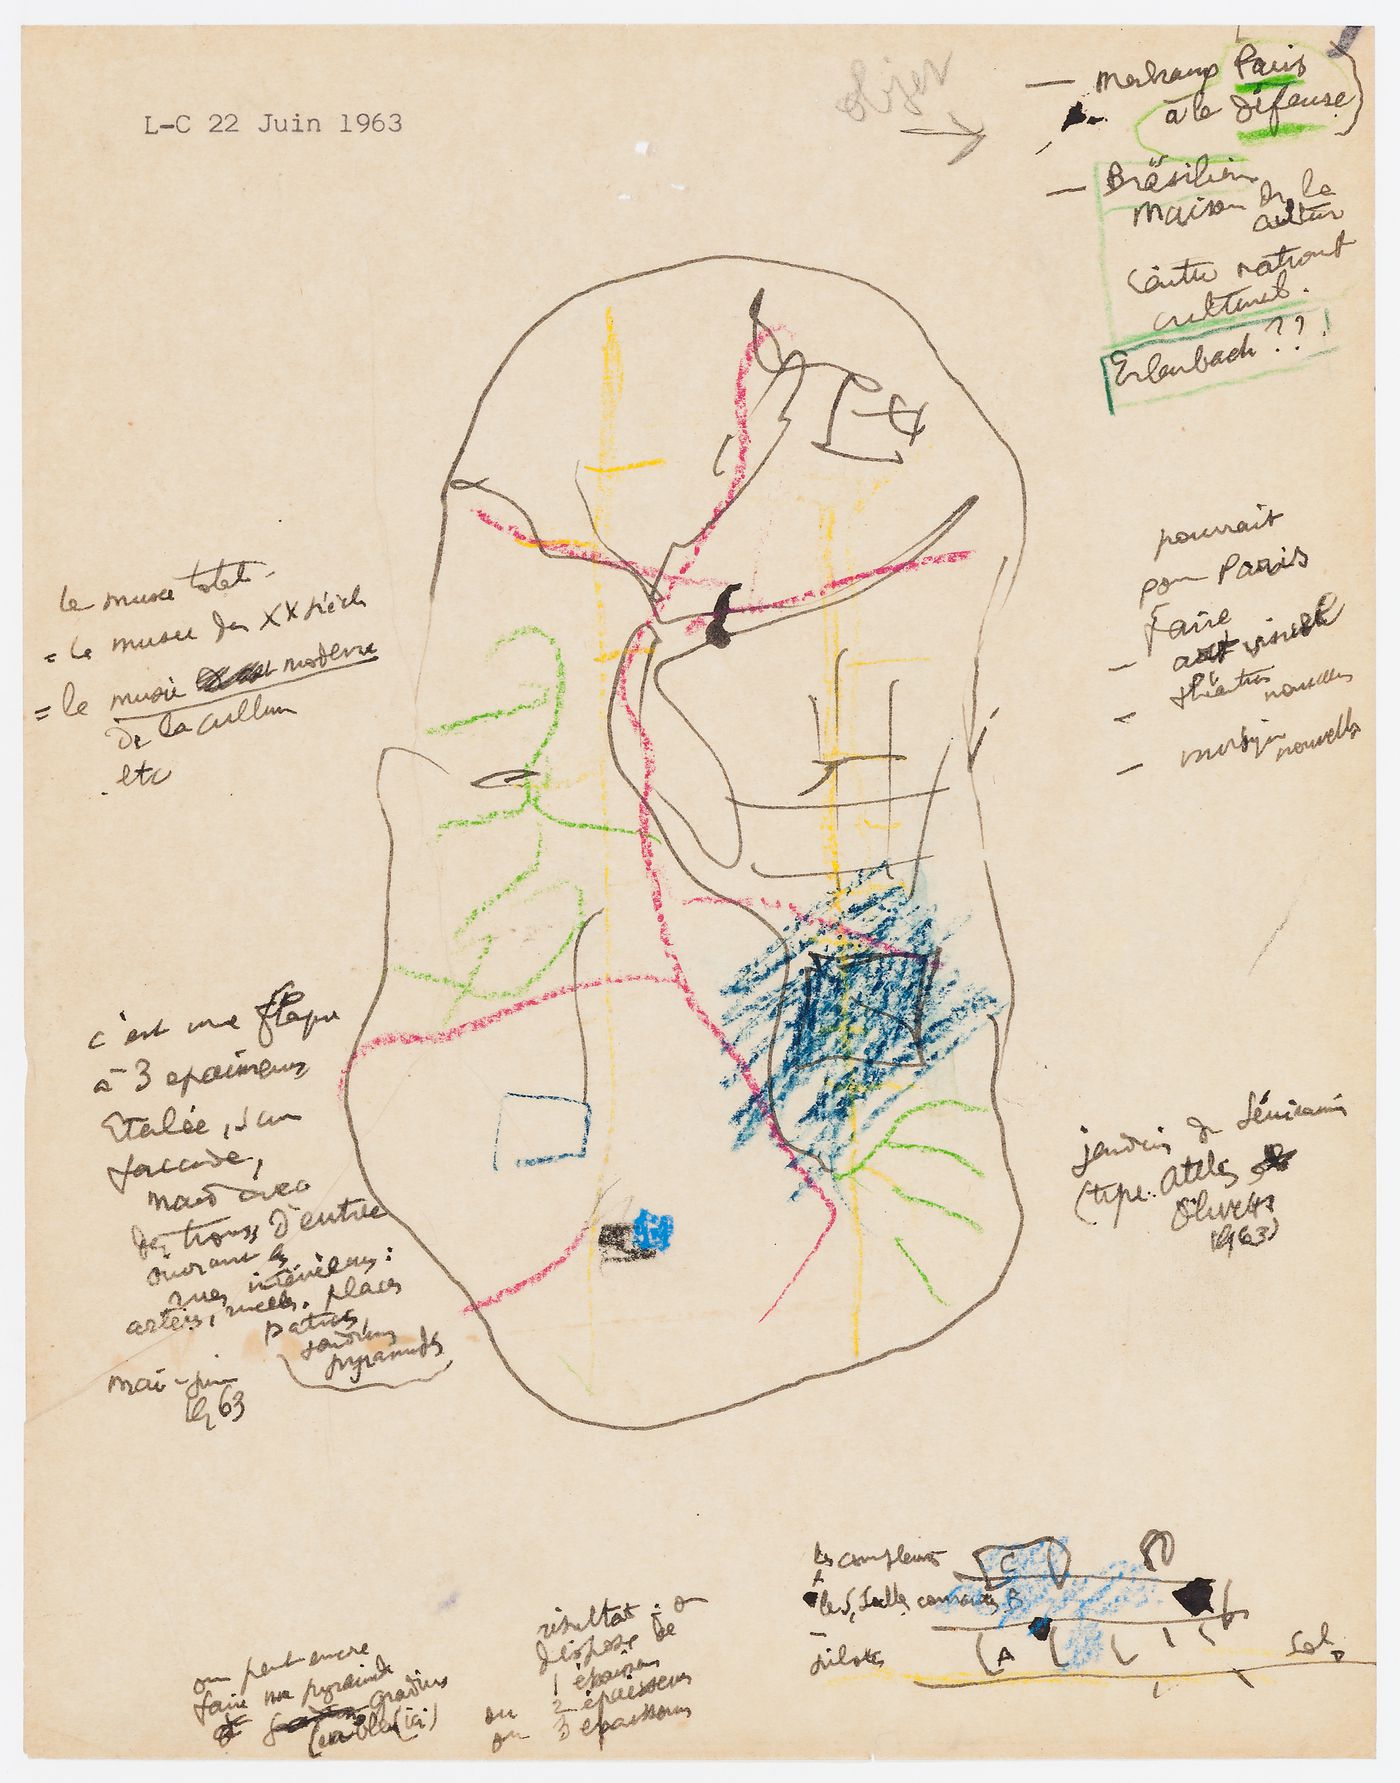 L-C 22 Juin 1963
objet
— Malraux Paris
à la défense
— Brésilien
Maison de la
cultur
Centre national
culturel.
Erlenbach ??!
pourrait
pour Paris
faire
— art visuel
— théâtres
nouvelles
— musique
nouvelle
le musée total.
= le musée du XX siècle
= le musée moderne
de la culture
etc
c'est une flaque
à 3 epaisseurs
étalée, sans
faccade,
mais avec
des trous d'entrée
ouvrant les
rues intérieures :
artères, ruelles, places
patios,
jardins
pyramides
mai-juin
1963
jardins de Sémiramis
(type. Atelies
Olivetti
1963)
les complements
C
les salles
B
pilotis
A
Sol
résultat : on
dispose de
1 épaisseur
ou 2 épaisseurs
ou 3 epaisseurs
on peut encore
faire une pyramide
à gradins
(ici)